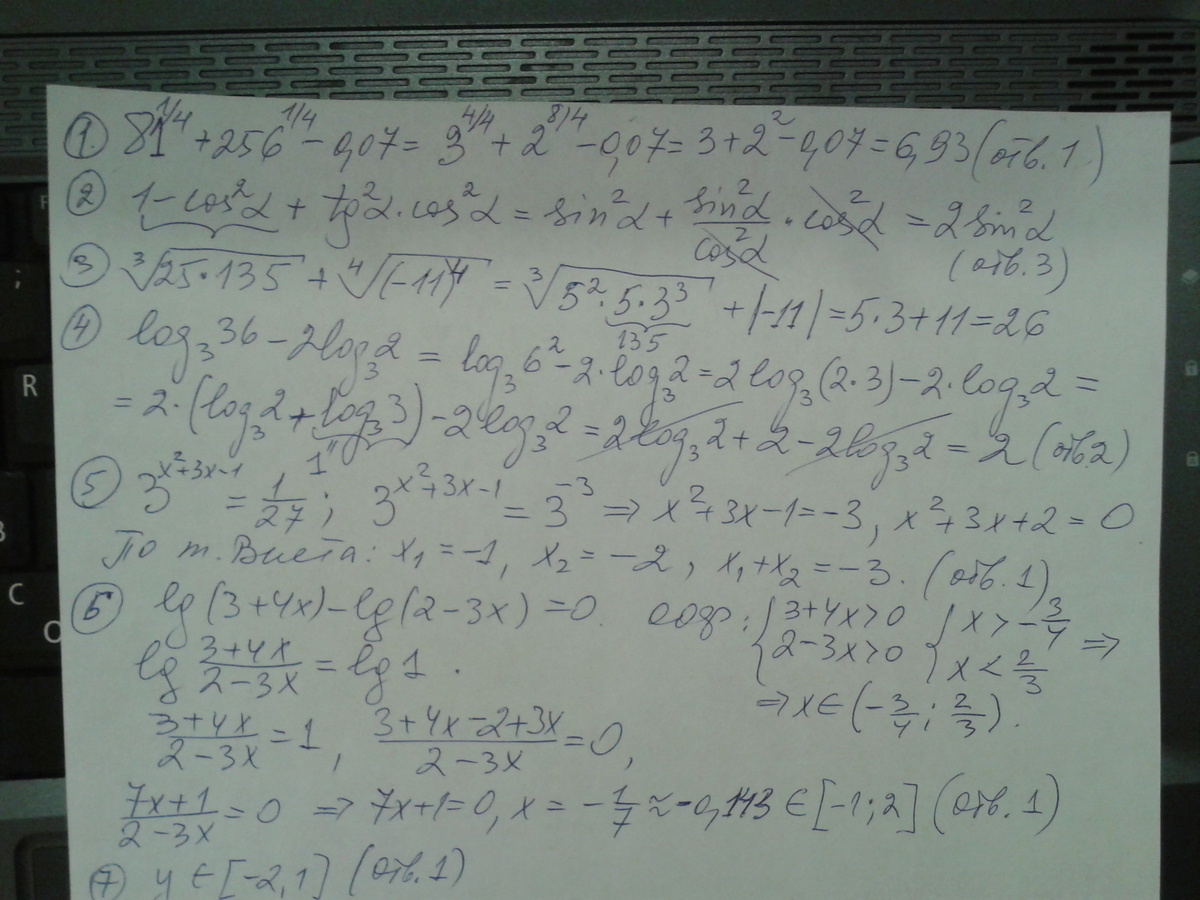 ① 81^{1/4} + 256^{1/4} - 0,07 = 3^{4/4} + 2^{8/4} - 0,07 = 3 + 2^2 - 0,07 = 6,93 (отв. 1)
② 1 - cos^2α + tg^2α · cos^2α = sin^2α + sin^2α/cos^2α · cos^2α = 2sin^2α
(отв. 3)
③ ∛(25·135) + ∜((-11)^4) = ∛(5^2 · 5·3^3) + |-11| = 5·3 + 11 = 26
135
④ log_3 36 - 2log_3 2 = log_3 6^2 - 2·log_3 2 = 2log_3(2·3) - 2·log_3 2 =
= 2·(log_3 2 + log_3 3) - 2log_3 2 = 2log_3 2 + 2 - 2log_3 2 = 2 (отв. 2)
1
⑤ 3^{x^2+3x-1} = 1/27 ; 3^{x^2+3x-1} = 3^{-3} ⇒ x^2+3x-1=-3, x^2+3x+2=0
По т. Виета: x_1 = -1, x_2 = -2, x_1+x_2 = -3. (отв. 1)
⑥ lg(3+4x) - lg(2-3x) = 0. оодр: { 3+4x>0 2-3x>0 { x > -3/4 x < 2/3 ⇒
lg (3+4x)/(2-3x) = lg 1. ⇒ x ∈ (-3/4 ; 2/3).
(3+4x)/(2-3x) = 1, (3+4x-2+3x)/(2-3x) = 0,
(7x+1)/(2-3x) = 0 ⇒ 7x+1=0, x = -1/7 ≈ -0,143 ∈ [-1;2] (отв. 1)
⑦ y ∈ [-2,1] (отв. 1)
R
;
C